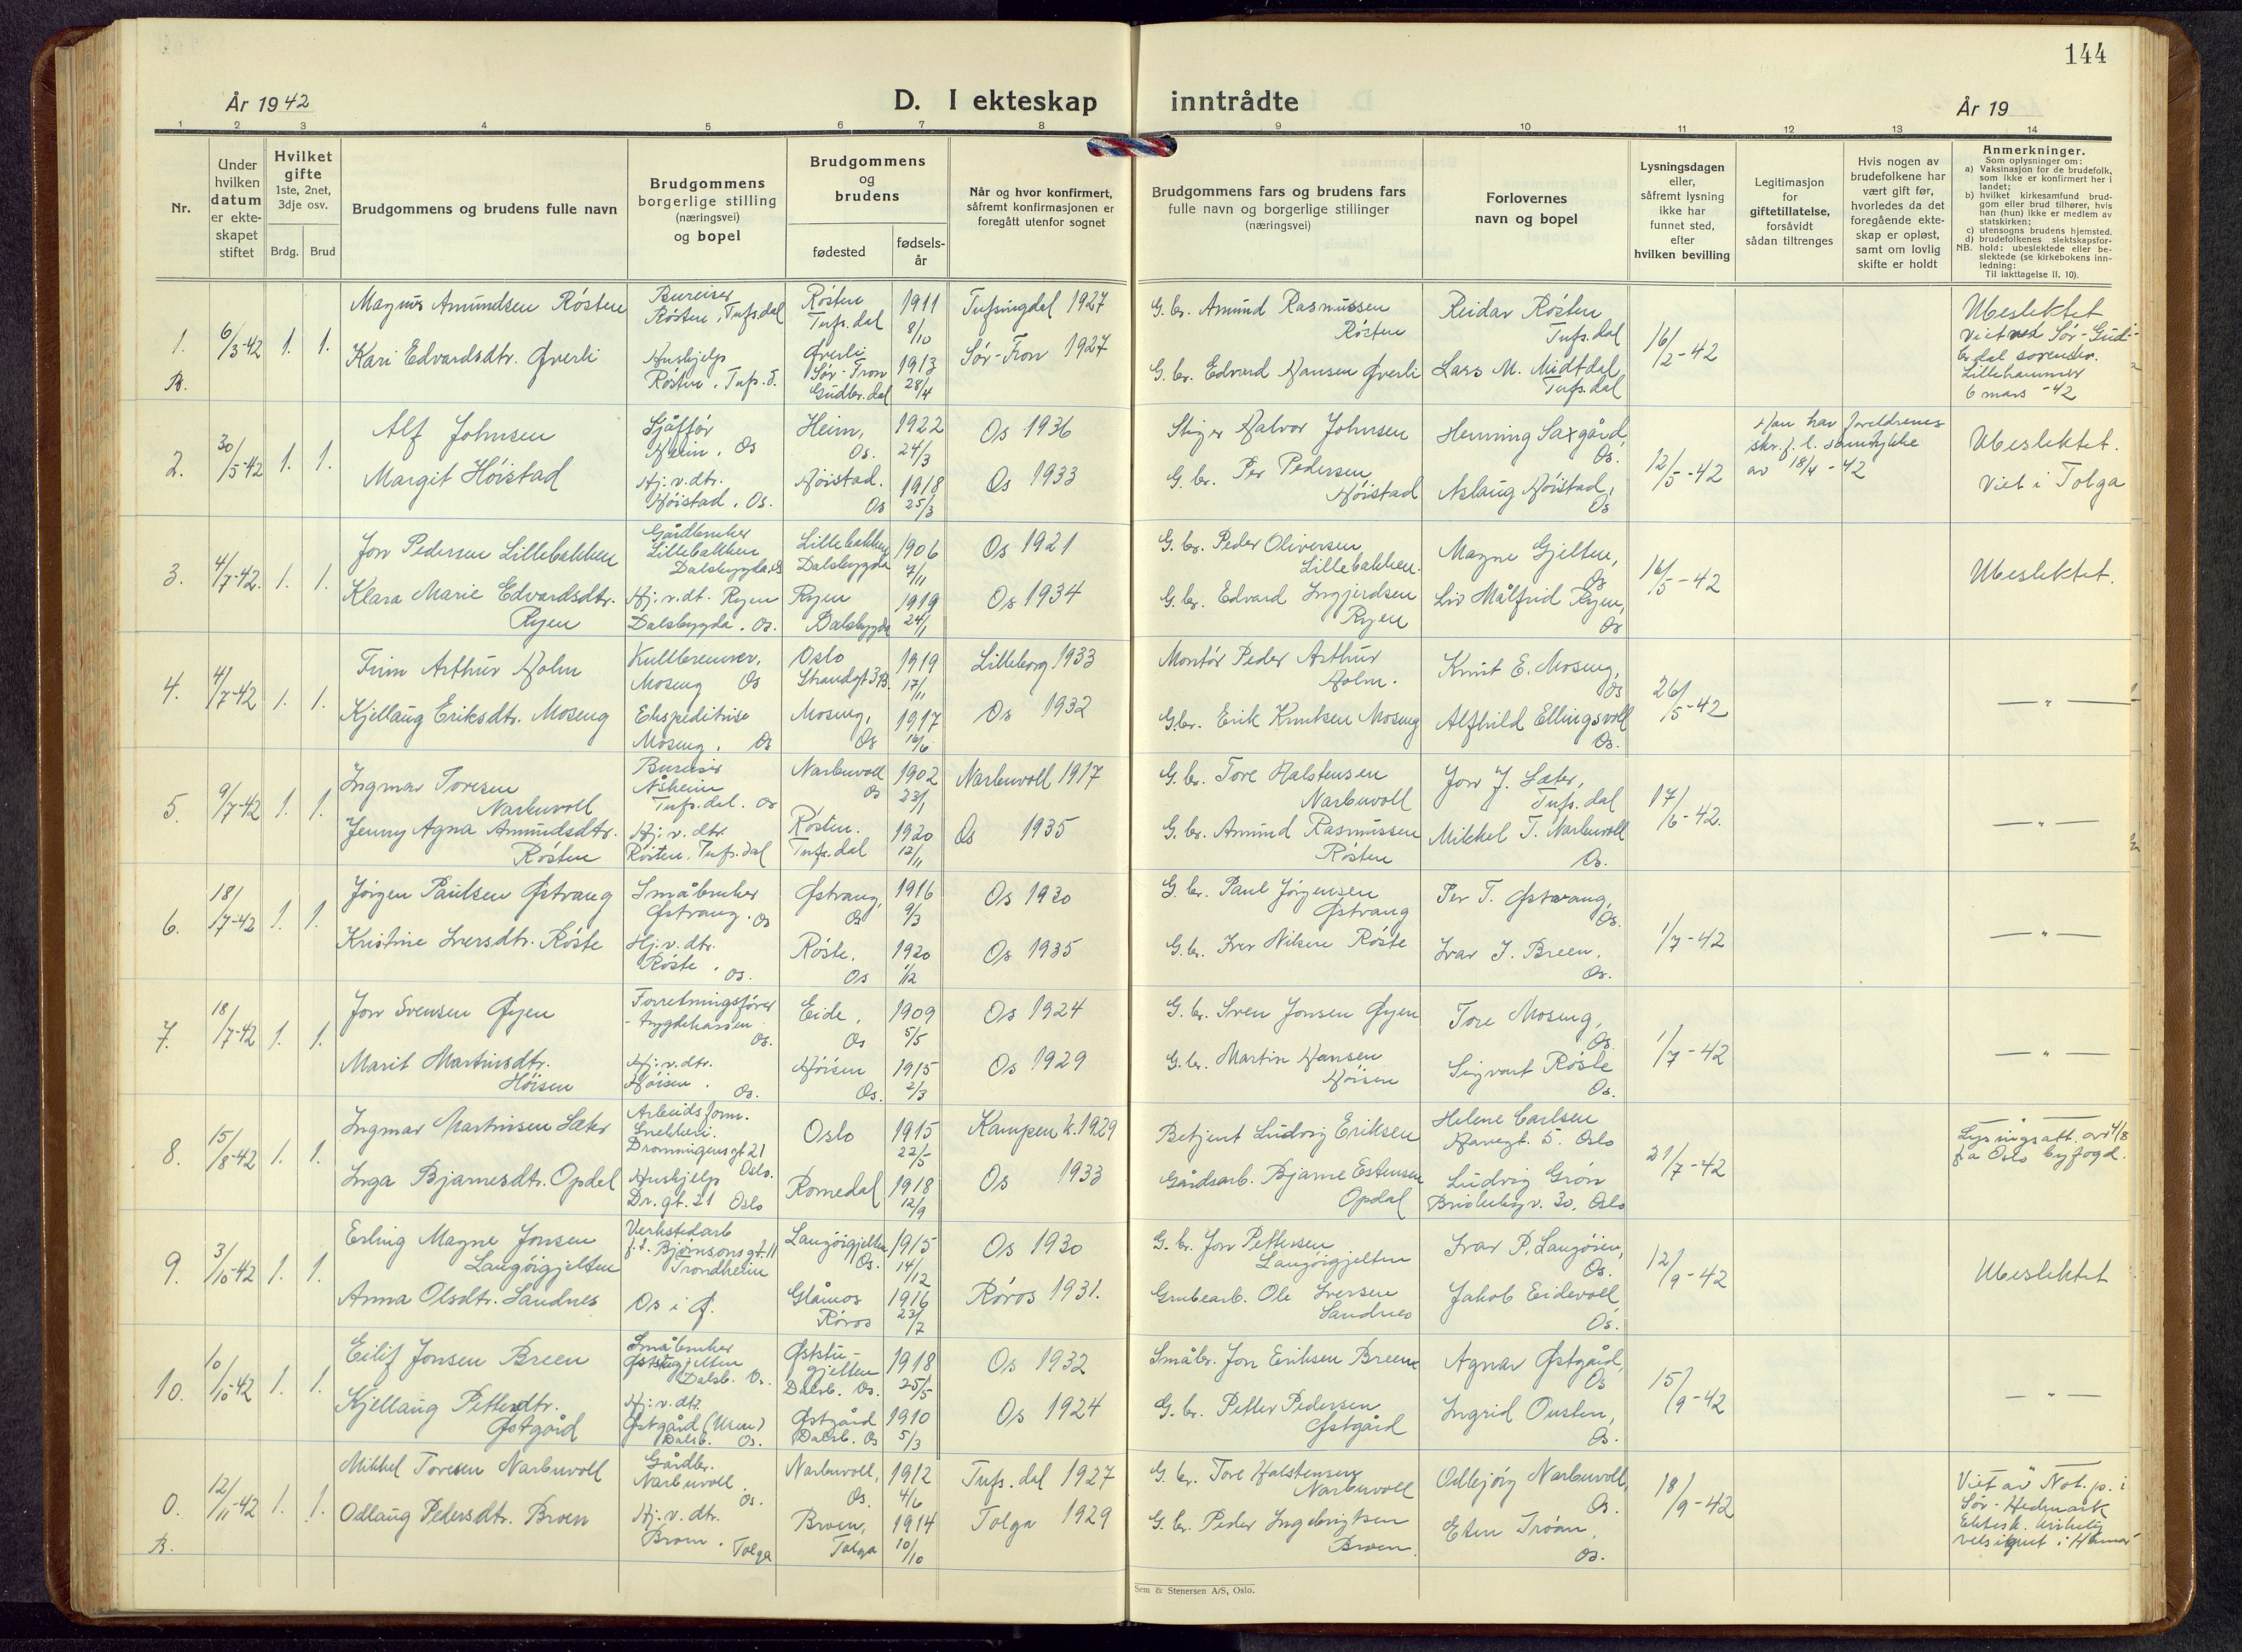 144
År 1942
D. I ekteskap inntrådte
År 19
1 2 3 4 5 6 7 8 9 10 11 12 13 14
Nr.
Under
hvilken
datum
er ekte-
skapet
stiftet
Hvilket
gifte
1ste, 2net,
3dje osv.
Brdg. Brud
Brudgommens og brudens fulle navn
Brudgommens
borgerlige stilling
(næringsvei)
og bopel
Brudgommens
og
brudens
fødested
fødsels-
år
Når og hvor konfirmert,
såfremt konfirmasjonen er
foregått utenfor sognet
Brudgommens fars og brudens fars
fulle navn og borgerlige stillinger
(næringsvei)
Forlovernes
navn og bopel
Lysningsdagen
eller,
såfremt lysning
ikke har
funnet sted,
efter
hvilken bevilling
Legitimasjon
for
giftetillatelse,
forsåvidt
sådan tiltrenges
Hvis nogen av
brudefolkene har
vært gift før,
hvorledes da det
foregående ekte-
skap er opløst,
samt om lovlig
skifte er holdt
Anmerkninger.
Som oplysninger om:
a) Vaksinasjon for de brudefolk,
som ikke er konfirmert her i
landet;
b) hvilket kirkesamfund brud-
gom eller brud tilhører, hvis
han (hun) ikke er medlem av
statskirken;
c) utensogns brudens hjemsted.
d) brudefolkenes slektskapsfor-
NB. hold: ubeslektede eller be-
slektede (se kirkebokens inn-
ledning:
Til iakttagelse II. 10).
1.
B.
6/3-42
1. 1.
Magnus Amundsen Røsten
Kari Edvardsdtr. Øverli
Bureiser
Røsten, Tufs.dal
Hushjelp
Røsten, Tufs.d.
Røsten
Tufs.dal
Øverli
Sør-Fron
Gudbr.dal
1911
8/10
1913
28/4
Tufsingdal 1927
Sør-Fron 1927
G.br. Amund Rasmussen
Røsten
G.br. Edvard Hansen Øverli
Reidar Røsten
Tufs.dal
Lars M. Midtdal
Tufs.dal
16/2-42
Ubeslektet
Viet ved Sør-Gud-
br.dal sorenskr.
Lillehammer
6 mars -42
2.
30/5-42
1. 1.
Alf Johnsen
Margit Høistad
Sjåffør
Heim, Os
Hj.v.dtr.
Høistad. Os.
Heim,
Os.
Høistad.
Os
1922
24/3
1918
25/3
Os 1936
Os 1933
Stiger Halvor Johnsen
G.br. Per Pedersen
Høistad
Henning Saxgård,
Os.
Aslaug Høistad,
Os
12/5-42
Han har foreldrenes
skr.f.l. samtykke
av 18/4-42
Ubeslektet.
Viet i Tolga
3.
4/7-42.
1. 1.
Jon Pedersen Lillebakken
Klara Marie Edvardsdtr.
Ryen
Gårdbruker
Lillebakken
Dalsbygda. Os
Hj.v.dt. Ryen
Dalsbygda. Os.
Lillebakken
Dalsbygda
Ryen
Dalsbygda
1906
7/11
1919
24/1
Os 1921
Os 1934
G.br. Peder Oliversen
Lillebakken.
G.br. Edvard Ingjerdsen
Ryen
Magne Gjelten,
Os
Liv Målfrid Ryen,
Os
16/5-42
Ubeslektet.
4.
4/7-42
1. 1.
Finn Arthur Holm
Kjellaug Eriksdtr. Moseng
Kullbrenner,
Moseng Os
Ekspeditrise
Moseng, Os
Oslo
Strandgt 3 B.
Moseng,
Os
1919
17/11
1917
16/6
Lilleborg 1933
Os 1932
Montør Peder Arthur
Holm.
G.br. Erik Knutsen Moseng
Knut E. Moseng,
Os
Alfhild Ellingsvoll
Os.
26/5-42
— " —
5.
9/7-42
1. 1.
Ingmar Toresen
Narbuvoll
Jenny Agna Amundsdtr.
Røsten
Bureiser
Åsheim
Tufs.dal. Os
Hj.v.dtr.
Røsten, Tufs.dal
Narbuvoll
Os
Røsten.
Tufs.dal
1902
23/1
1920
12/11
Narbuvoll 1917
Os 1935
G.br. Tore Halstensen
Narbuvoll
G.br. Amund Rasmussen
Røsten
Jon J. Sæter,
Tufs.dal
Mikkel T. Narbuvoll
Os.
17/6-42.
— " —
6.
18/7-42
1. 1.
Jørgen Paulsen Østvang
Kristine Iversdtr. Røste
Småbruker
Østvang. Os
Hj.v.dtr.
Røste, Os.
Østvang,
Os
Røste,
Os
1916
9/3
1920
1/12
Os 1930
Os 1935
G.br. Paul Jørgensen
Østvang
G.br. Iver Nilsen Røste
Per T. Østvang,
Os.
Ivar J. Breen,
Os.
1/7-42
— " —
7.
18/7-42
1. 1.
Jon Svensen Øyen
Marit Martinsdtr.
Høisen
Forretningsfører
- trygdekassen
Os.
Hj.v.dtr.
Høisen. Os.
Eide,
Os
Høisen
Os.
1909
5/5
1915
2/3
Os 1924
Os 1929
G.br. Sven Jonsen Øyen
G.br. Martin Hansen
Høisen
Tore Moseng,
Os.
Sigvart Røste
Os.
1/7-42
— " —
8.
15/8-42
1. 1.
Ingmar Martinsen Sæter
Inga Bjarnesdtr. Opdal
Arbeidsform.
Snekkeri.
Dronningensgt 21
Oslo.
Hushjelp
Dr.gt. 21 Oslo
Oslo
Romedal
1915
22/5
1918
12/9
Kampen k. 1929
Os 1933
Betjent Ludvig Eriksen
Gårdsarb. Bjarne Estensen
Opdal
Helene Carlsen
5. Oslo
Ludvig Grøn
30, Oslo
21/7-42
— " —
Lysningsatt. av 4/8
fra Oslo byfogd.
9.
3/10-42
1. 1.
Erling Magne Jonsen
Langøigjelten
Anna Olsdtr. Sandnes
Verkstedarb
f.t. Bjørnsonsgt. 11
Trondheim
Os i Ø.
Langøigjelten
Os.
Glåmos
Røros
1915
14/12
1916
23/7
Os 1930
Røros 1931.
G.br. Jon Pettersen
Langøigjelten
Grubearb. Ole Iversen
Sandnes
Ivar P. Langøien,
Os.
Jakob Eidevoll
Os.
12/9-42
Ubeslektet
10.
10/10-42
1. 1.
Eilif Jonsen Breen
Kjellaug Pettersdtr.
Østgård
Småbruker
Øststugjelten
Dalsb. Os.
Hj.v.dtr.
Østgård (Uren)
Dalsb. Os.
Øststu-
gjelten
Dalsb. Os.
Østgård
Dalsb. Os
1918
25/5
1910
5/3
Os 1932
Os 1924
Småbr. Jon Eriksen Breen
G.br. Petter Pedersen
Østgård
Agnar Østgård,
Os
Ingrid Ousten,
Os.
15/9-42
— " —
0.
B.
12/11-42
1. 1.
Mikkel Toresen Narbuvoll
Odlaug Pedersdtr. Broen
Gårdbr.
Narbuvoll
Os.
Hj.v.dtr.
Broen, Tolga
Narbuvoll,
Os.
Broen,
Tolga
1912
4/6
1914
10/10
Tufs.dal 1927
Tolga 1929
G.br. Tore Halstensen
Narbuvoll
G.br. Peder Ingebrigtsen
Broen
Oddbjørg Narbuvoll,
Os.
Trøan,
Os.
18/9-42
— " —
Viet av Not.p. i
Sør-Hedmark
Ektesk. kirkelig
velsignet i Hamar
Sem & Stenersen A/S, Oslo.